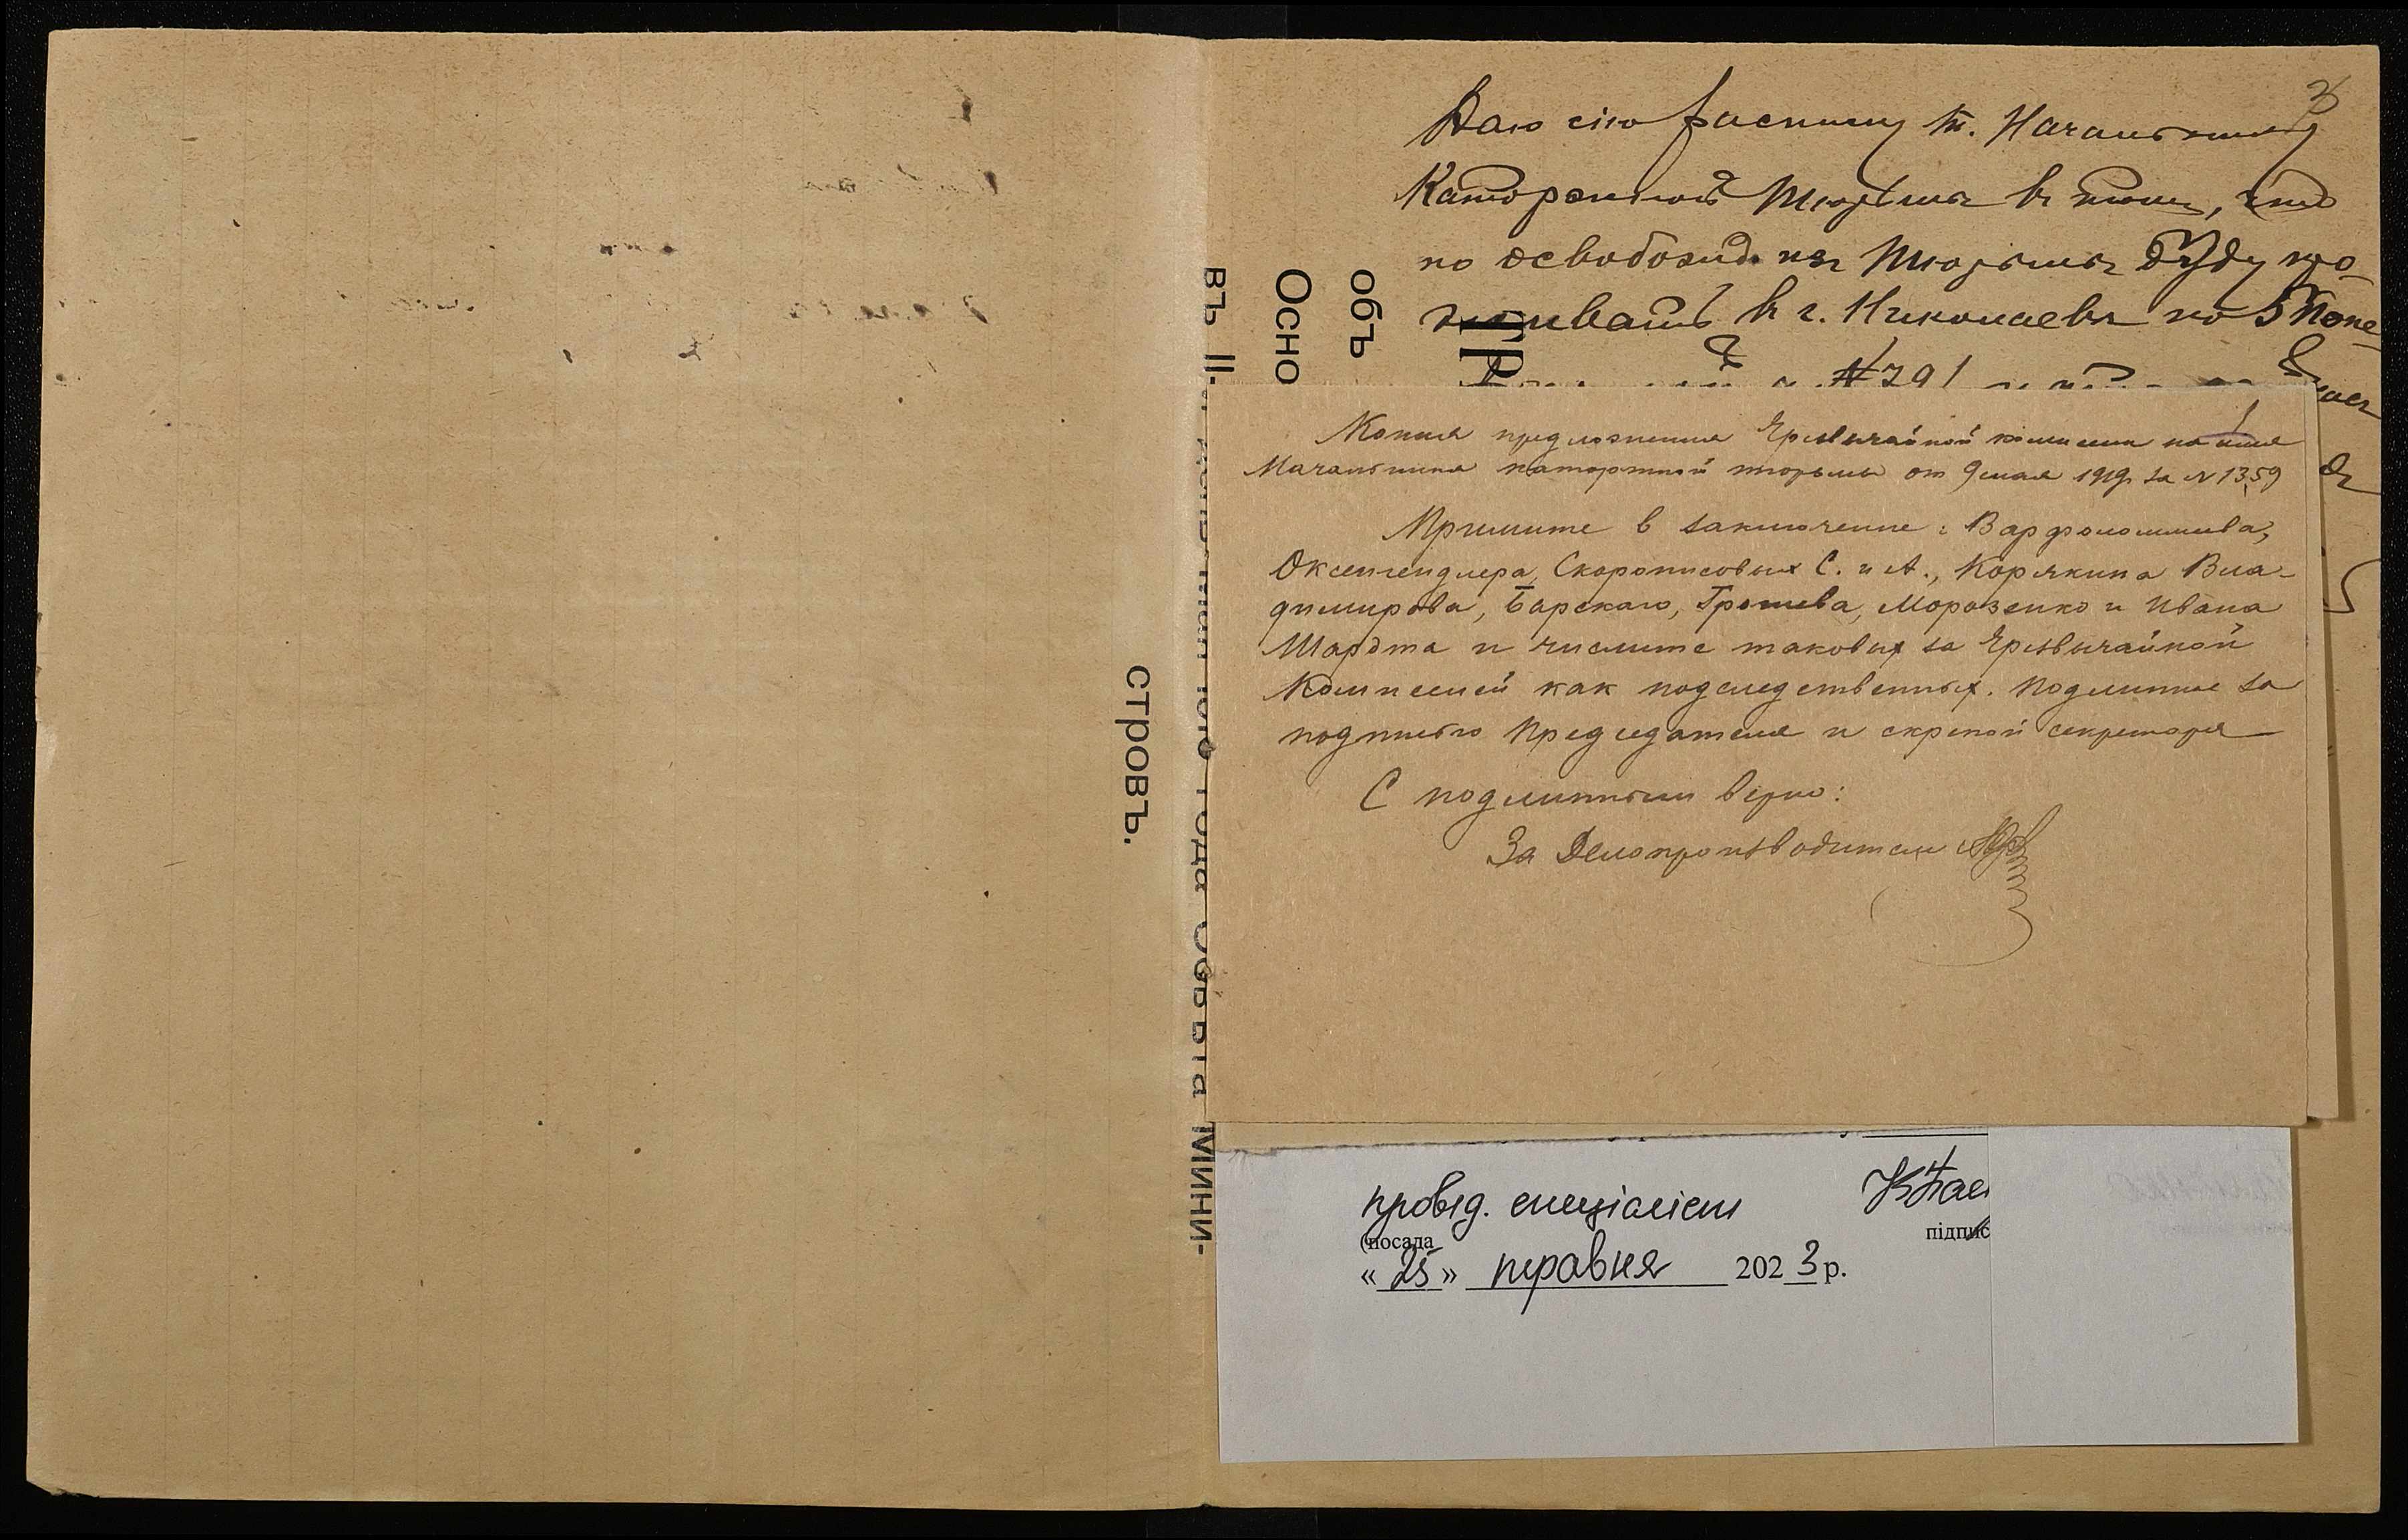 3
Даю сію расписку т. Начальнику
Каторжной Тюрьмы въ томъ, что
по освобожд. изъ Тюрьмы буду про-
живать в г. Николаевѣ по 5 Попе-
№ 291
объ
Осно
въ II
года Совѣта Мини-
стровъ.
1
Копия предложения Чрезвычайной комиссии на имя
Начальника каторжной тюрьмы от 9 мая 1919 за N 1359
Примите в заключение: Варфоломеева,
Оксенгендлера, Скорописовых С. и А., Корякина Вла-
димирова, Барскаго, Грошева, Морозенко и Ивана
Шардта и числите таковых за Чрезвычайной
Комиссией как подследственных. Подлинное за
подписью Председателя и скрепой секретаря
С подлинным верно:
За Делопроизводителя
провід. спеціаліст
(посада підпис
« 25 » травня 2023 р.